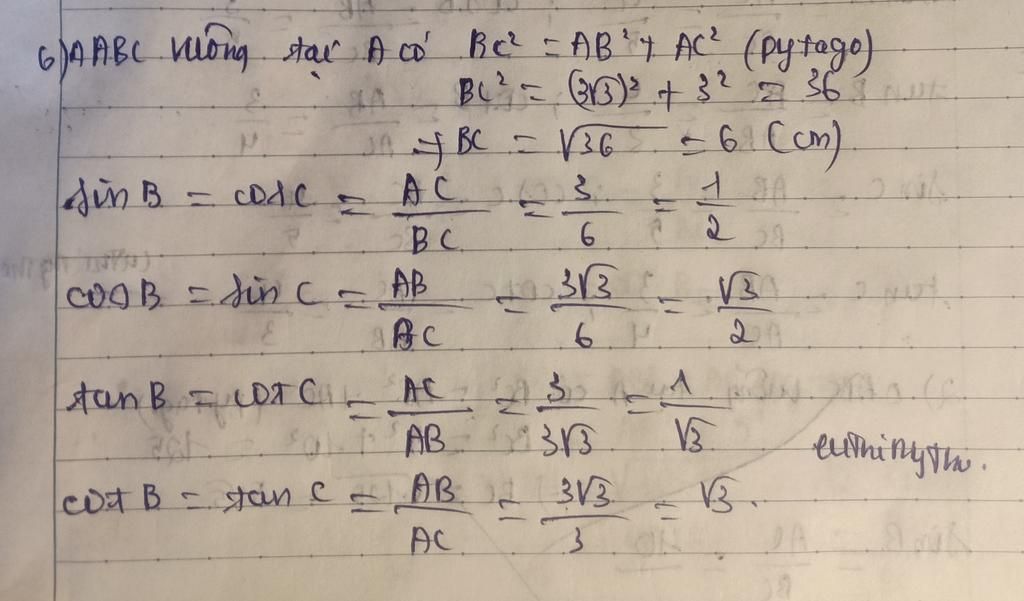 6) ΔABC vuông tại A có BC² = AB² + AC² (pytago)
BC² = (3√3)² + 3² = 36
⇒ BC = √36 = 6 (cm)
sin B = cos C = AC/BC = 3/6 = 1/2
cos B = sin C = AB/BC = 3√3/6 = √3/2
tan B = cot C = AC/AB = 3/3√3 = 1/√3
cot B = tan C = AB/AC = 3√3/3 = √3.